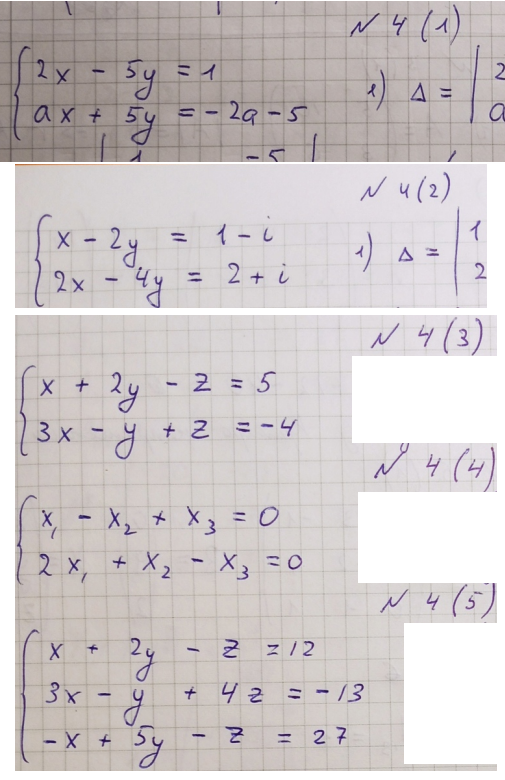 N 4 (1)
2x - 5y = 1
ax + 5y = -2a - 5
1) Δ = | 2
a
1 -5
N 4 (2)
x - 2y = 1 - i
2x - 4y = 2 + i
1) Δ = | 1
2
N 4 (3)
x + 2y - z = 5
3x - y + z = -4
N 4 (4)
x₁ - x₂ + x₃ = 0
2x₁ + x₂ - x₃ = 0
N 4 (5)
x + 2y - z = 12
3x - y + 4z = -13
-x + 5y - z = 27